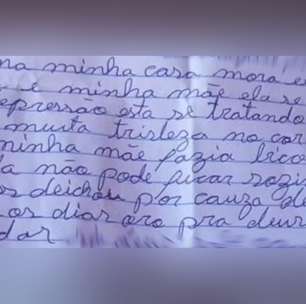 na minha casa mora e
e minha mãe ela so
epressão esta se tratando
muita tristeza na cor
minha mãe fazia
a não pode ficar sozi
os deichou por cauza de
os dias oro pra deus
dar